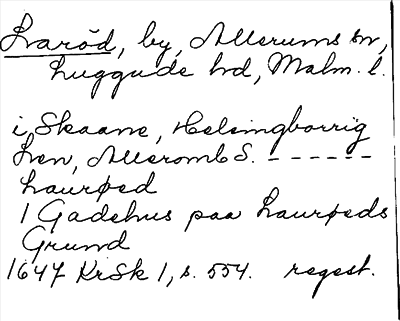 Lvaröd, by, Allerums sn,
Luggude hd, Malm. l.
i, Skaane, Helsingborrig
Len, Alleromb S. ------
Laurøed
1 Gadehus paa Laurøeds
Grund
1647 KrSk 1, s. 554. regest.